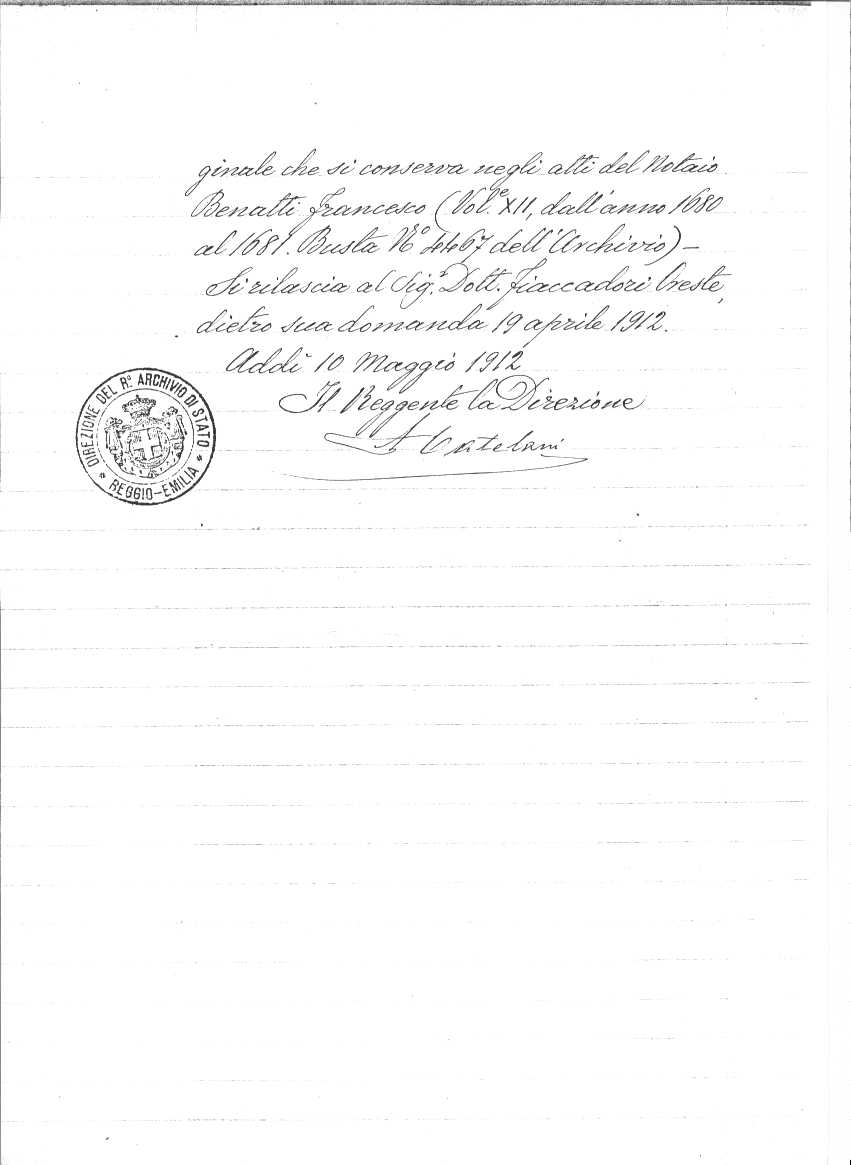 ginale che si conserva negli atti del Notaio
Benatti Francesco (Vol.e XII, dall'anno 1680
al 1681. Busta No 4467 dell'Archivio) –
Si rilascia al Sig.r Dott. Fiaccadori Oreste,
dietro sua domanda 19 aprile 1912.
Addì 10 Maggio 1912
Il Reggente la Direzione
A Catelani
DIREZIONE DEL R.o ARCHIVIO DI STATO
* REGGIO-EMILIA *